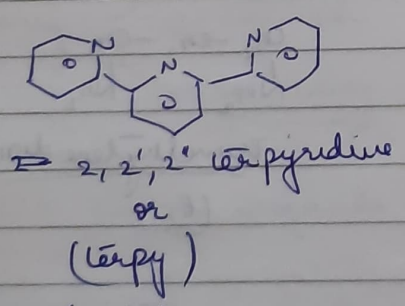 N N N
⇒ 2, 2', 2" terpyridine
or
(terpy)